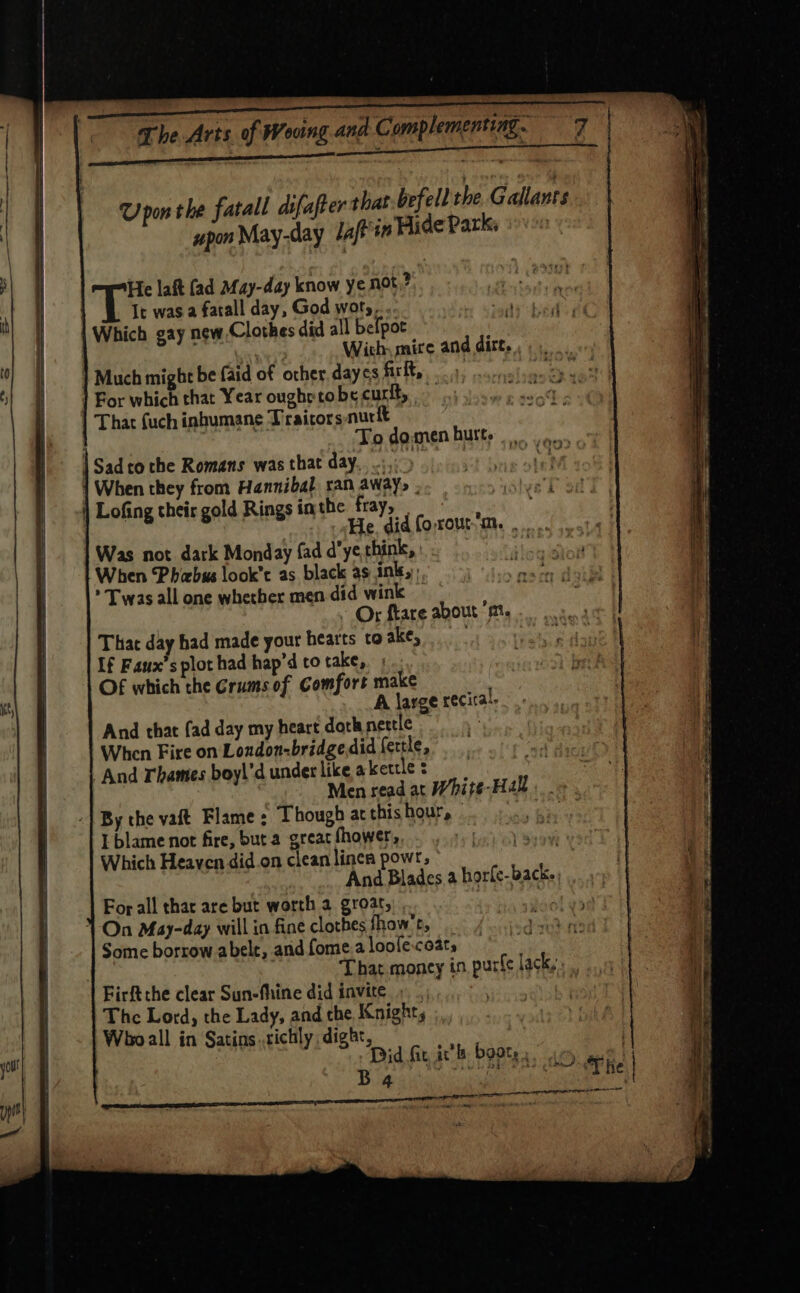 The Arts of Wooing and Complementing. 7
Upon the fatall diſaſter that befell the Gallants
upon May-day laſt in Hide Park.
THe laſt ſad May-day know ye not?
It was a fatall day, God wot,
Which gay new Clothes did all beſpot
With mire and dirt.
Much might be ſaid of other dayes firſt,
For which that Year ought to be curſt,
That ſuch inhumane Traitors nurſt
To do men hurt.
Sad to the Romans was that day,
When they from Hannibal ran away,
Loſing their gold Rings in the fray,
He did ſo rout 'm.
Was not dark Monday ſad d'ye think,
When Phœbus look't as black as ink,
'Twas all one whether men did wink
Or ſtare about 'm.
That day had made your hearts to ake,
If Faux's plot had hap'd to take,
Of which the Crums of Comfort make
A large recital.
And that ſad day my heart doth nettle
When Fire on London-bridge did ſettle,
And Thames boyl'd under like a kettle:
Men read at White-Hall
By the vaſt Flame: Though at this hour,
I blame not fire, but a great ſhower,
Which Heaven did on clean linen powr,
And Blades a horſe-back.
For all that are but worth a groat,
On May-day will in fine clothes ſhow't,
Some borrow a belt, and ſome a looſe coat,
That money in purſe lack,
Firſt the clear Sun-ſhine did invite
The Lord, the Lady, and the Knight,
Who all in Satins richly dight,
Did ſit it'h boots,
B 4 The